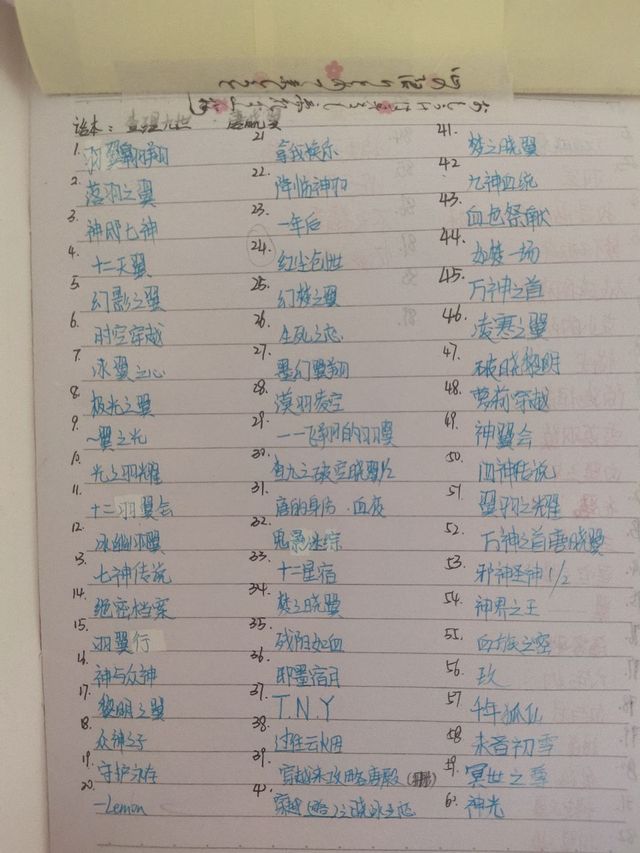 话本：查理九世 · 唐晓翼
1. 羽翼翱翔
2. 落羽之翼
3. 神邸七神
4. 十二天翼
5. 幻影之翼
6. 时空穿越
7. 冰翼之心
8. 极光之翼
9. ~翼之光
10. 光之羽耀
11. 十二羽翼会
12. 冰幽羽翼
13. 七神传说
14. 绝密档案
15. 羽翼行
16. 神与众神
17. 黎明之翼
18. 众神之子
19. 守护永存
20. —Lemon
21. 拿我娱乐
22. 降临神羽
23. 一年后
24. 红尘创世
25. 幻梦之翼
26. 生死之恋
27. 墨幻翼翔
28. 漠羽凌空
29. ——飞翔的羽翼
30. 查九之破空晓翼1/2
31. 唐的身份·血夜
32. 鬼影迷踪
33. 十二星宿
34. 梦之晓翼
35. 残阳如血
36. 耶墨宿月
37. T.N.Y
38. 过往云烟
39. 穿越来攻略唐殿
40. 穿越之晓冰之恋
41. 梦之晓翼
42. 九神血统
43. 血色祭献
44. 如梦一场
45. 万神之首
46. 凌寒之翼
47. 破晓黎明
48. 萝莉穿越
49. 神翼会
50. 四神传说
51. 翼羽之耀
52. 万神之首唐晓翼
53. 邪神圣神1/2
54. 神界之王
55. 血族之密
56. 玖
57. 千年狐仙
58. 未香初雪
59. 冥世之尊
60. 神光